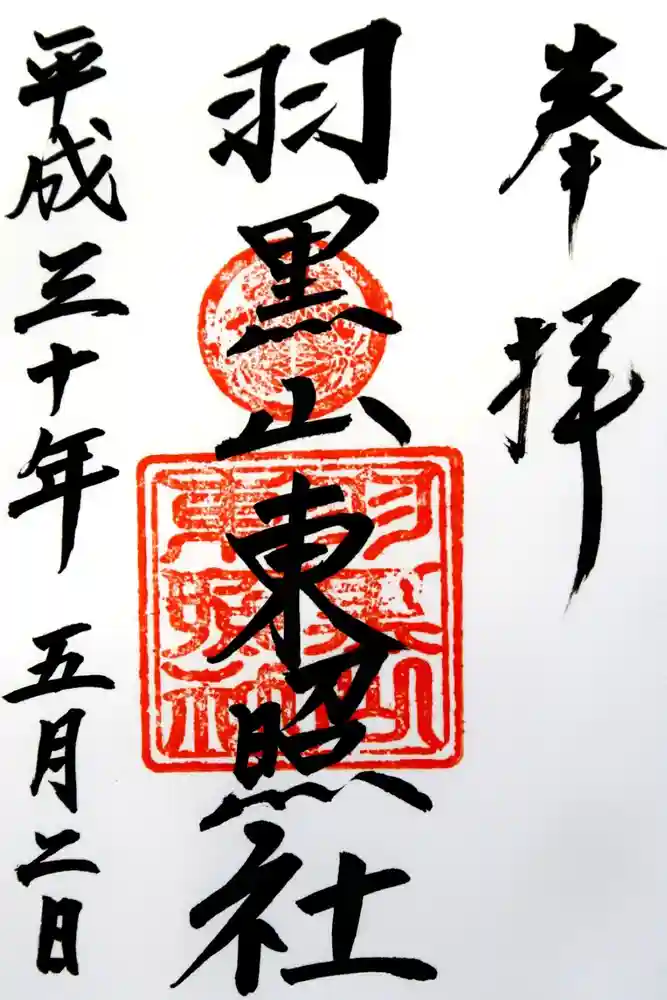 奉拝
羽黒山東照社
平成三十年五月二日